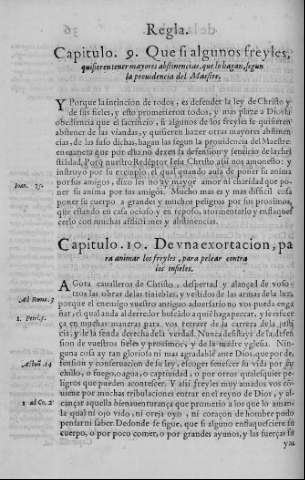 Regla.
Capitulo. 9. Que si algunos freyles,
quisieren tener mayores abstinencias, que lo hagan, segun
la prouidencia del Maestre.
Y Porque la intincion de todos, es defender la ley de Christo y
de sus fieles, y esto prometieron todos, y mas plaze a Dios la
obediencia que el sacrificio, si algunos de los freyles se quisieren
abstener de las viandas, y quisieren hazer otras mayores abstinen-
cias, de las suso dichas, hagan las segun la prouidencia del Maestre:
en manera que por esto no dexen la defension y seruicio de la chri-
stiãdad, Porq̃ nuestro Redẽptor Iesu Christo assi nos amonesto: y
instruyo por su exemplo, el qual quando auia de poner su anima
por sus amigos, dixo: No ay mayor amor ni charidad que po-
ner su anima por sus amigos. Mucho mas es y mas difficil cosa
poner su cuerpo a grandes y muchos peligros por sus proximos,
que estando en casa ocioso y en reposo, atormentarlo y enflaque-
cerlo con muchas afflictiones y abstinencias.
Ioan. 15.
Capitulo. 10. De vna exortacion, pa
ra animar los freyles, para pelear contra
los infieles.
A Gora caualleros de Christo, despertad y alançad de voso-
tros las obras de las tinieblas, y vestidos de las armas de la luz,
porque el enemigo vuestro antiguo aduersario no vos pueda en-
gañar, el qual anda al derredor buscado a quiẽ haga pecar, y si resiste
Ad Roma. 13
1. Petri. 5.
y de la senda derecha de la verdad. Nunca
sension de vuestros fieles y proximos, y de la madre yglesia. Nin-
guna cosa ay tan gloriosa ni mas agradable ante Dios, que por de-
fension y conseruacion de la ley, escoger fenescer su vida por cu-
chillo, o fuego, o agua, o captiuidad, o por otros qualesquier pe-
ligros que pueden acontecer. Y assi freyles muy amados vos cõ-
uiene por muchas tribulaciones entrar en el reyno de Dios, y al-
cançar aquella bienauenturança que prometio a los que lo aman:
la qual ni ojo vido, ni oreja oyo, ni coraçon de hombre pudo
pensar ni saber. De donde se sigue, que si alguno enflaqueciere su
cuerpo, o por poco comer, o por grandes ayunos, y las fuerças su
Actuũ. 14
1. ad Co. 2.
yas